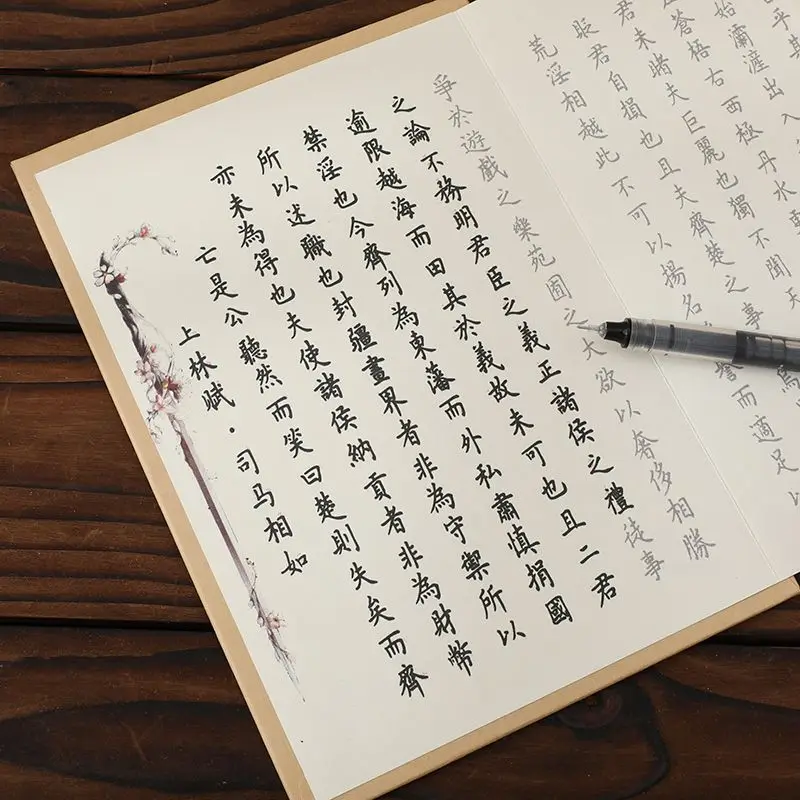 上林賦·司马相如
亡是公聽然而笑曰楚則失矣而齊
亦未為得也夫使諸侯納貢者非為財幣
所以迷職也封疆畫界者非為守禦所以
禁淫也今齊列為東藩而外私肅慎捐國
逾限越海而田其於義故未可也且二君
之論不務明君臣之義正諸侯之禮徒事
爭於遊戲之樂苑囿之大欲以奢侈相勝
荒淫相越此不可以揚名譽而適足以
貶君自損也且夫齊楚之事
君未睹夫巨麗也獨不聞天
蒼梧右西極丹水更
始灞滻出入
乎其